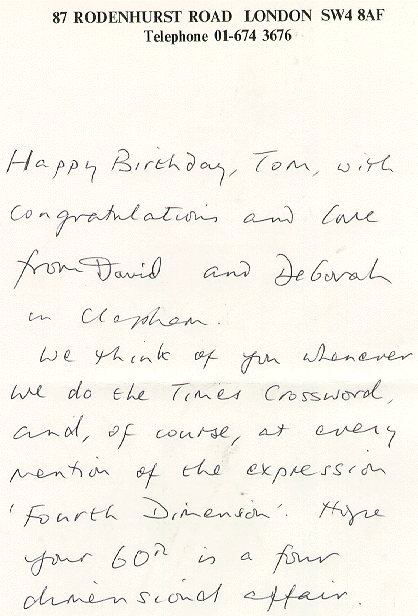 87 RODENHURST ROAD LONDON SW4 8AF
Telephone 01-674 3676
Happy Birthday, Tom, with
congratulations and love
from David and Deborah
in Clapham.
We think of you whenever
we do the Times Crossword,
and, of course, at every
mention of the expression
'Fourth Dimension'. Hope
your 60th is a four
dimensional affair.